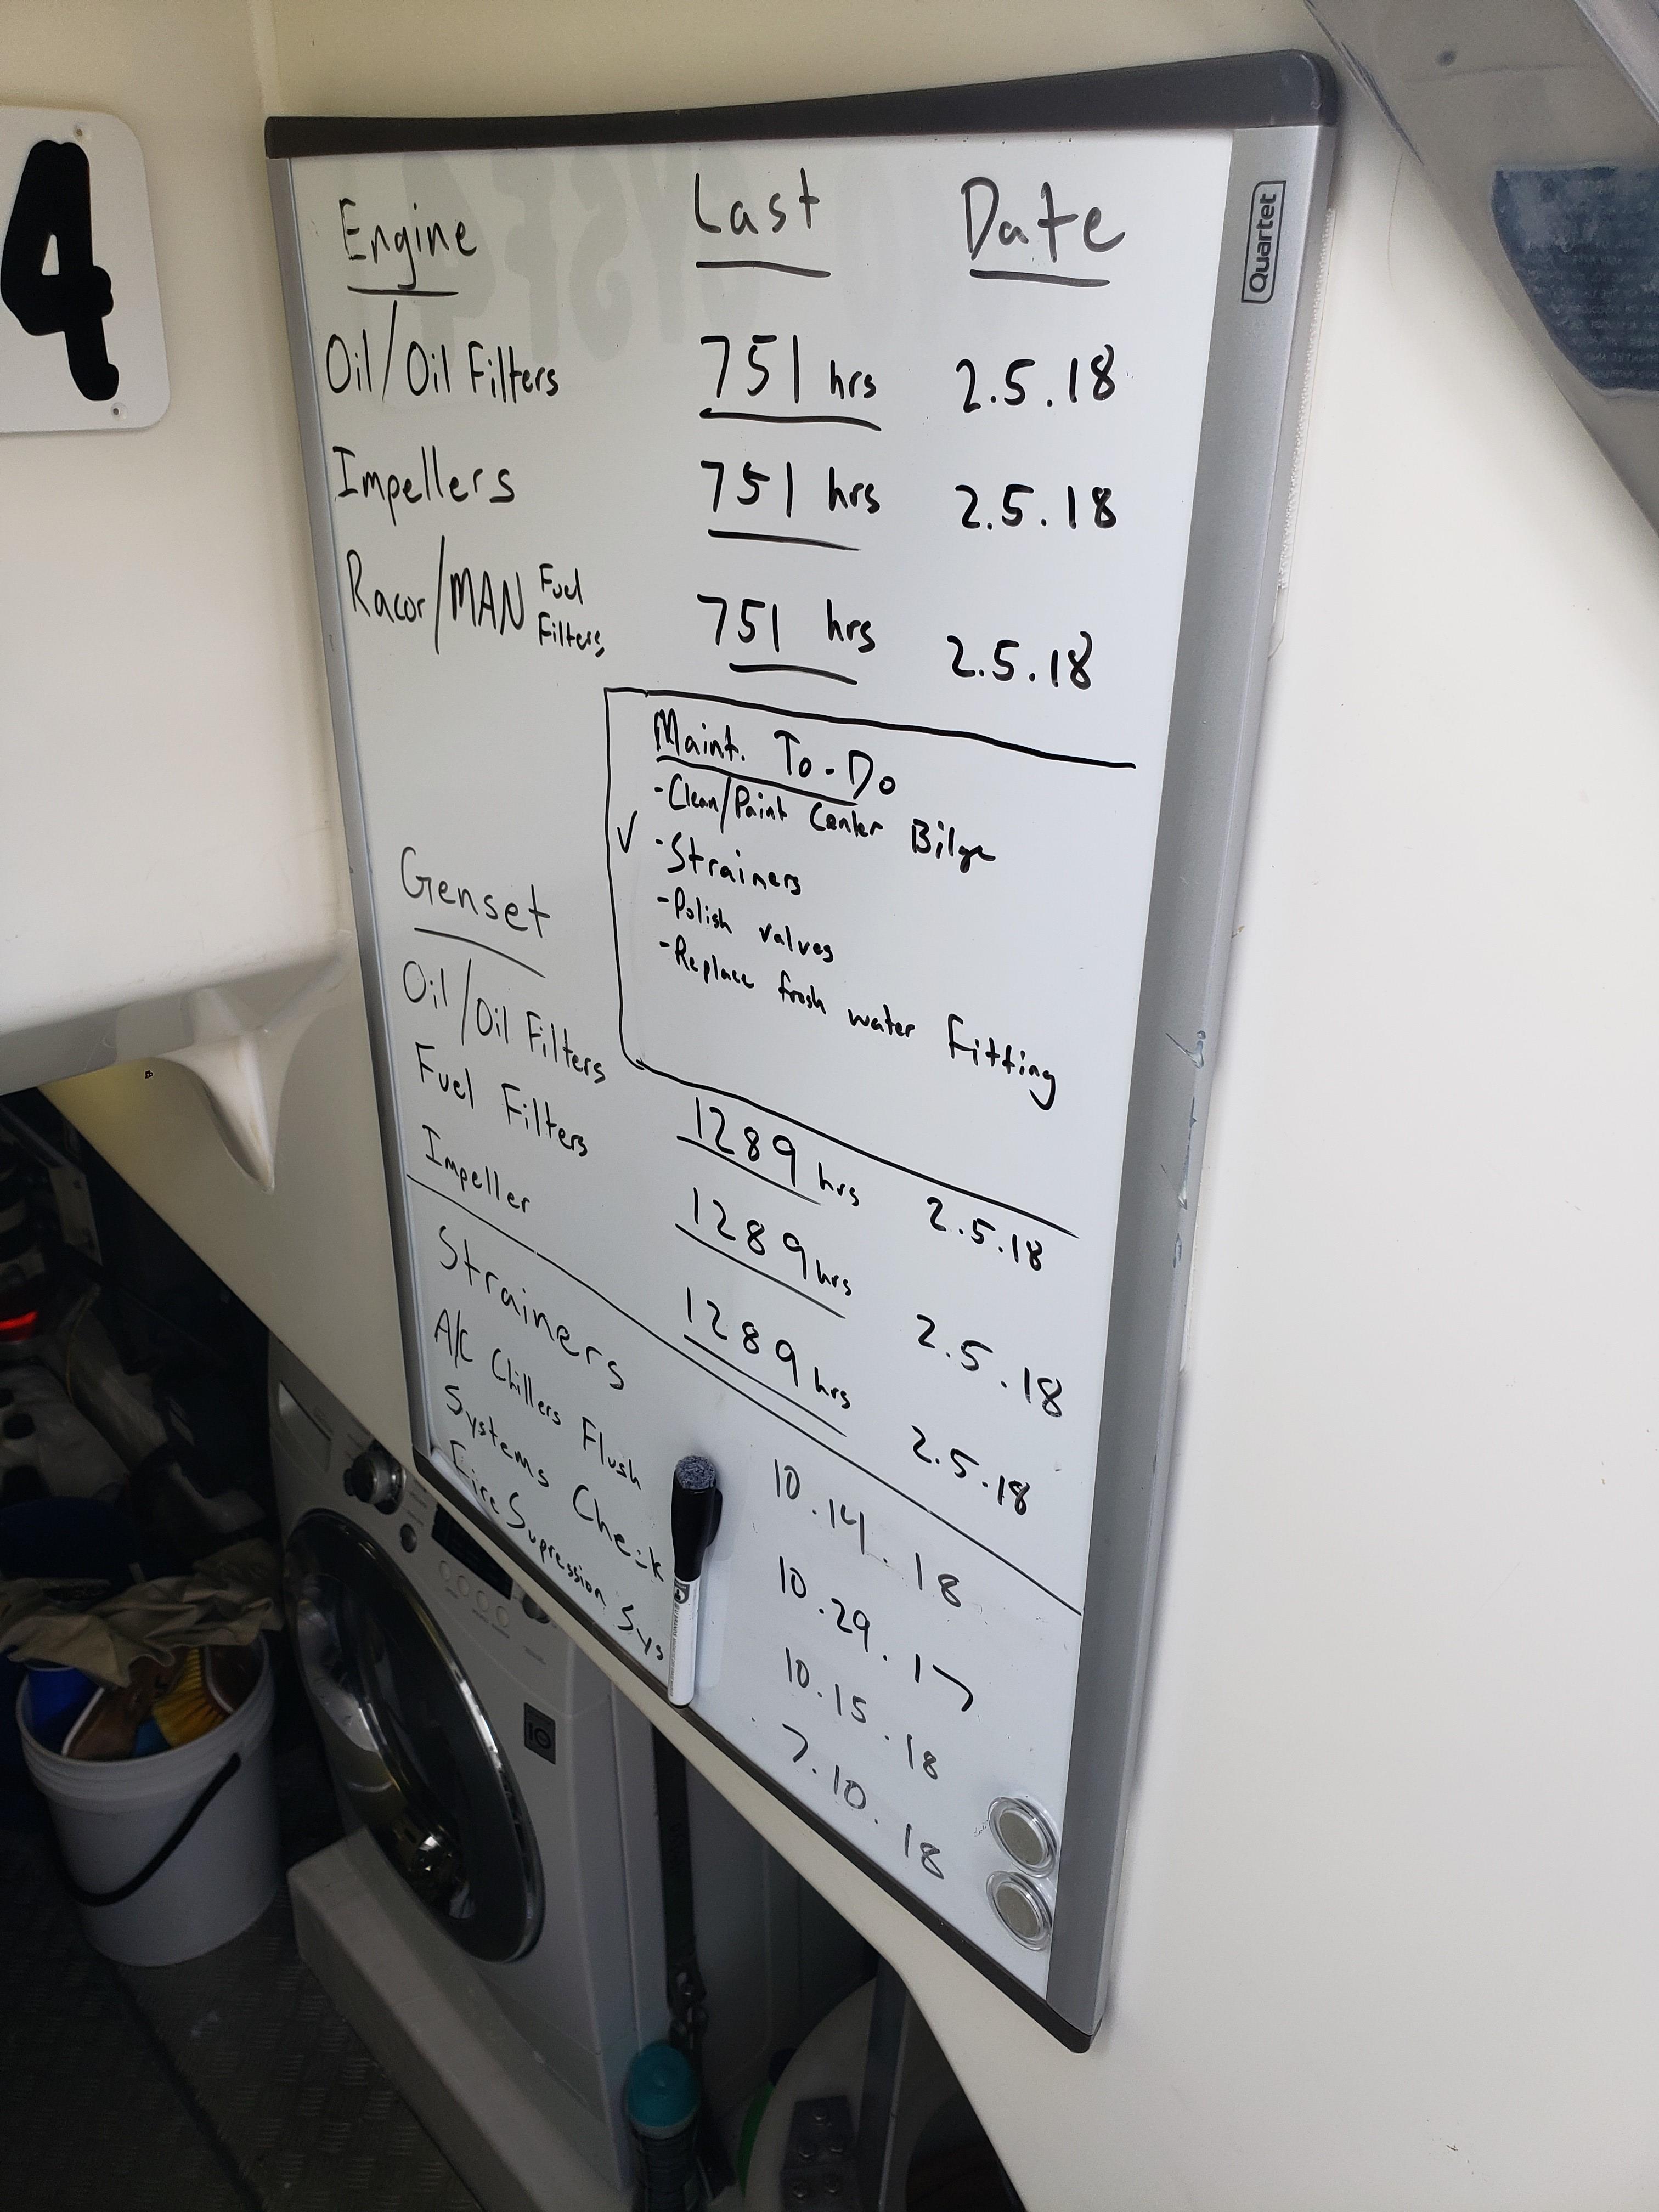 4
Quartet
Engine Last Date
Oil/Oil Filters 751 hrs 2.5.18
Impellers 751 hrs 2.5.18
Racor/MAN Fuel Filters 751 hrs 2.5.18
Maint. To-Do
-Clean/Paint Center Bilge
✓ -Strainers
-Polish valves
-Replace fresh water Fitting
Genset
Oil/Oil Filters 1289 hrs 2.5.18
Fuel Filters 1289 hrs 2.5.18
Impeller 1289 hrs 2.5.18
Strainers 10.14.18
A/C Chillers Flush 10.29.17
Systems Check 10.15.18
Fire Supression Sys 7.10.18